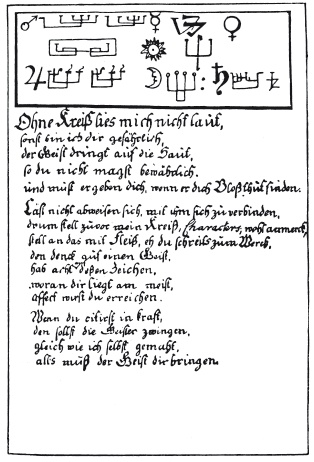 ♂ ☿ ♀
♃ ☽ : ♄
Ohne Kreiß lies mich nicht laut,
sonst bin ich dir gefährlich,
der Geist dringt auf die Haut,
so du nicht magst bewährlich.
und muß ergeben dich, wenn er dich Bloß thut finden.
Laß nicht abweisen sich, mit ihm sich zu verbinden,
drum stell zuvor mein Kreiß, Characters, wohl anmerck,
stell an das mit Fleiß, eh du schreits zum Werck,
den denck auf einen Geist,
hab acht deßen Zeichen,
woran dir liegt am meist,
affect wirst du erreichen.
Wenn du citirst in kraft,
den sollst die Geister zwingen,
gleich wie ich selbst gemacht,
alls muß der Geist dir bringen.